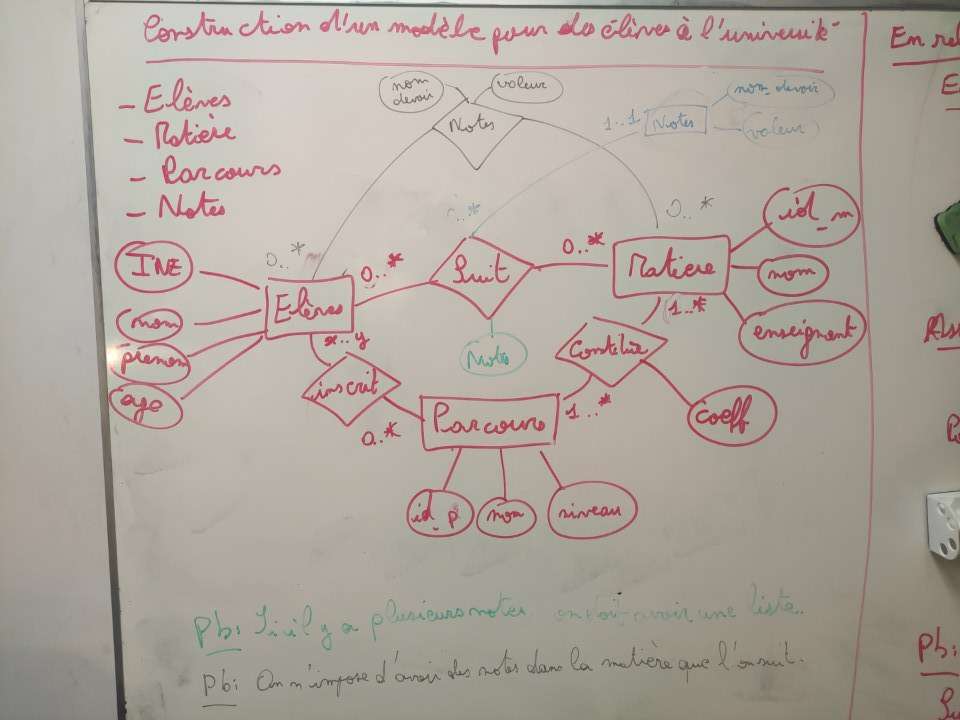 Construction d'un modèle pour des élèves à l'université
- Elèves
- Matière
- Parcours
- Notes
nom devoir
valeur
Notes
1..1
Notes
nom_devoir
valeur
0..*
0..*
..*
INE
nom
prenom
age
Elèves
0..*
Suit
0..*
Matière
id_m
nom
enseignant
1..*
Notes
x..y
inscrit
0..*
Parcours
1...*
Constitue
coeff
id_p
nom
niveau
Pb: Si il y a plusieurs notes on doit avoir une liste.
Pb: On n'impose d'avoir des notes dans la matière que l'on suit.
En rel
E
Ass
Pb:
Su